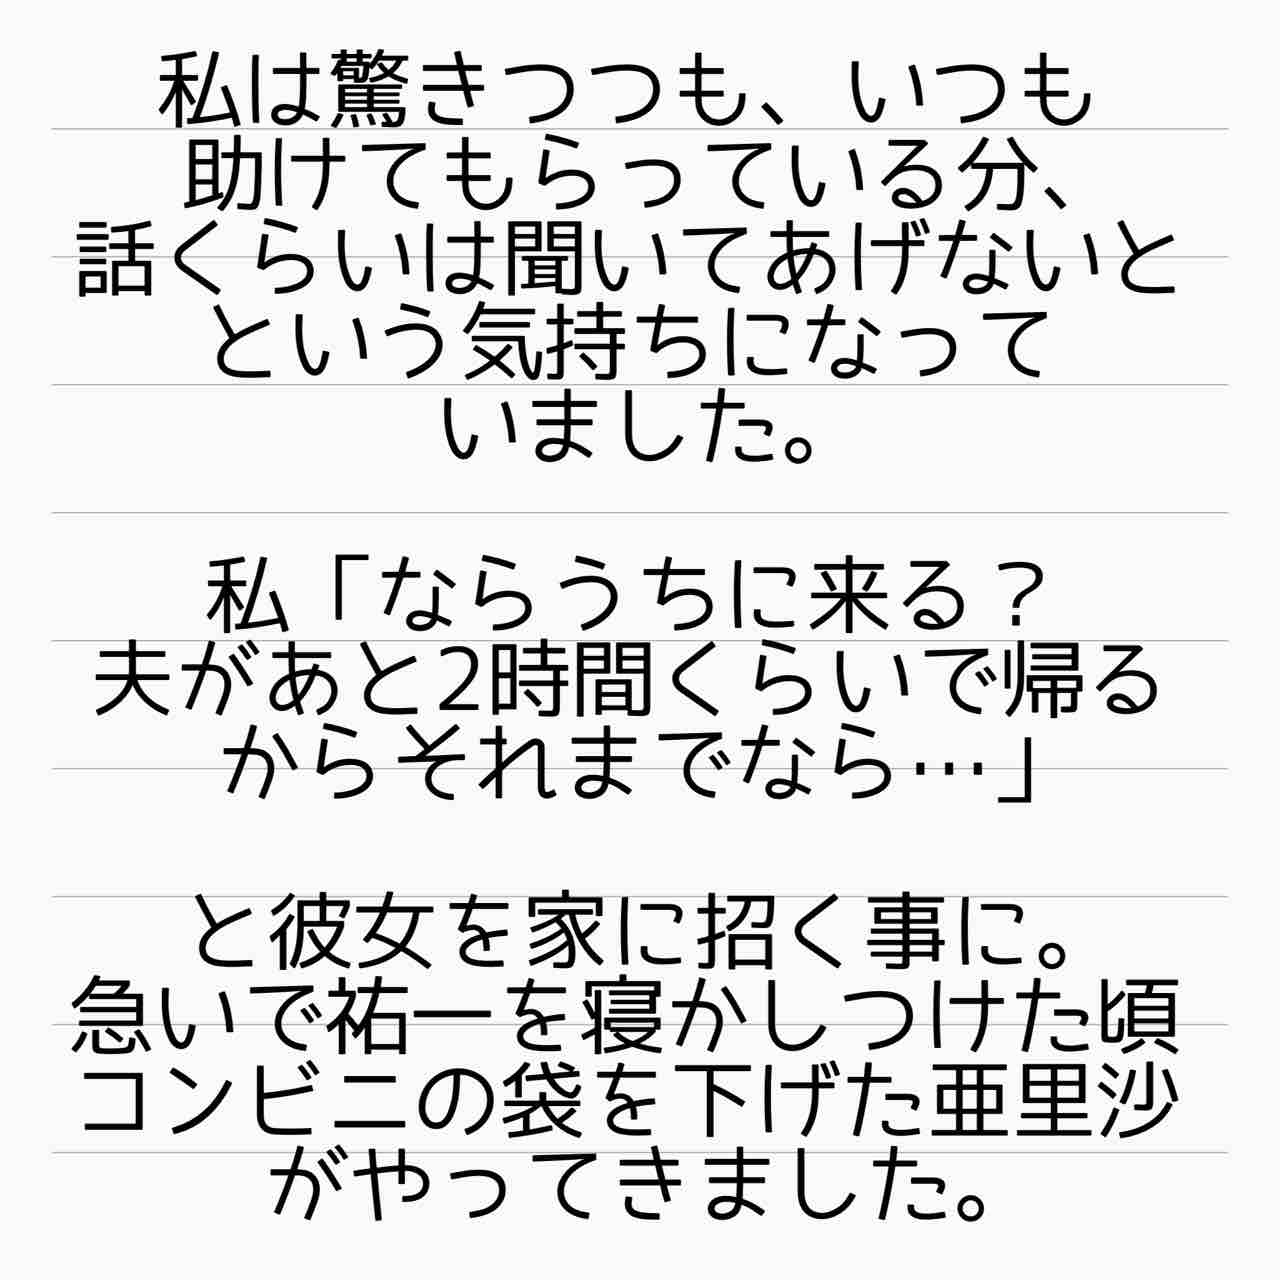 私は驚きつつも、いつも
助けてもらっている分、
話くらいは聞いてあげないと
という気持ちになって
いました。
私「ならうちに来る？
夫があと2時間くらいで帰る
からそれまでなら…」
と彼女を家に招く事に。
急いで祐一を寝かしつけた頃
コンビニの袋を下げた亜里沙
がやってきました。